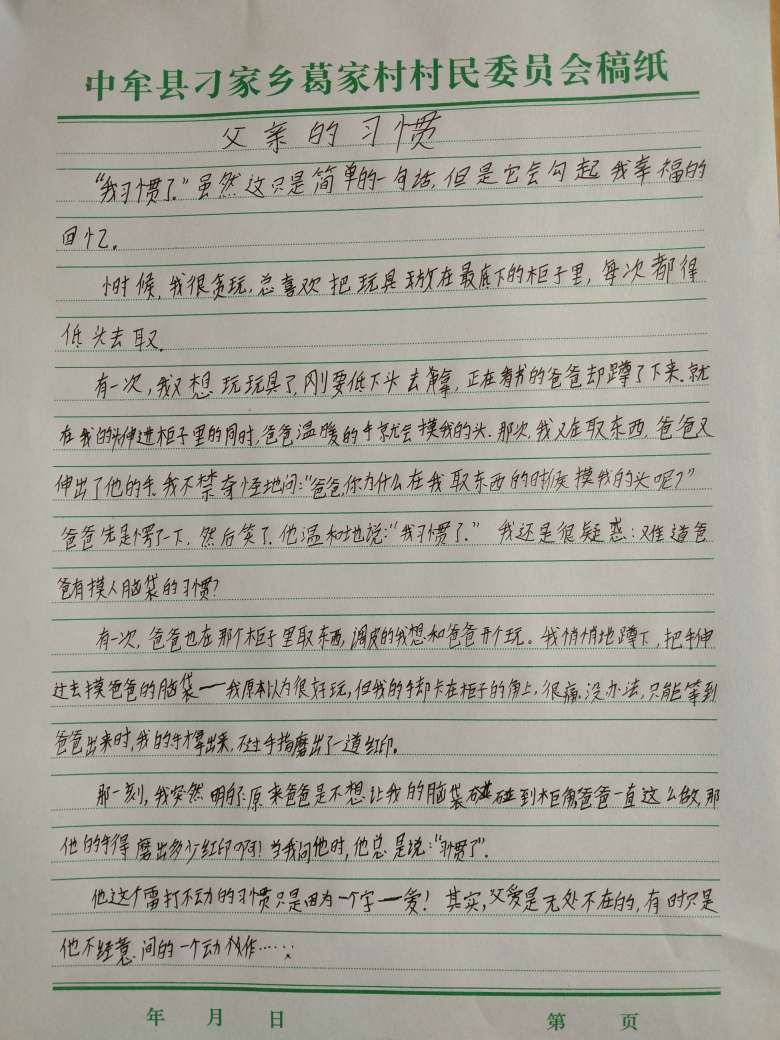 中牟县刁家乡葛家村村民委员会稿纸
父亲的习惯
“我习惯了。”虽然这只是简单的一句话,但是它会勾起我幸福的
回忆。
小时候,我很贪玩,总喜欢把玩具放在最底下的柜子里,每次都得
低头去取。
有一次,我又想玩玩具了,刚要低下头去拿,正在看书的爸爸却蹲了下来。就
在我的头伸进柜子里的同时,爸爸温暖的手就会摸我的头。那次,我又在取东西,爸爸又
伸出了他的手。我不禁奇怪地问:“爸爸,你为什么在我取东西的时候摸我的头呢?”
爸爸先是愣了一下,然后笑了,他温和地说:“我习惯了。”我还是很疑惑:难道爸
爸有摸人脑袋的习惯?
有一次,爸爸也在那个柜子里取东西,调皮的我想和爸爸开个玩。我悄悄地蹲下,把手伸
过去摸爸爸的脑袋——我原本以为很好玩,但我的手却卡在柜子的角上,很痛。没办法,只能等到
爸爸出来时,我的手才拿出来,不过手指磨出了一道红印。
那一刻,我突然明白了:原来爸爸是不想让我的脑袋碰到柜角,爸爸一直这么做,那
他的手得磨出多少红印啊!当我问他时,他总是说:“习惯了”。
他这个雷打不动的习惯只是因为一个字——爱!其实,父爱是无处不在的,有时只是
他不经意间的一个动作……
年 月 日
第 页